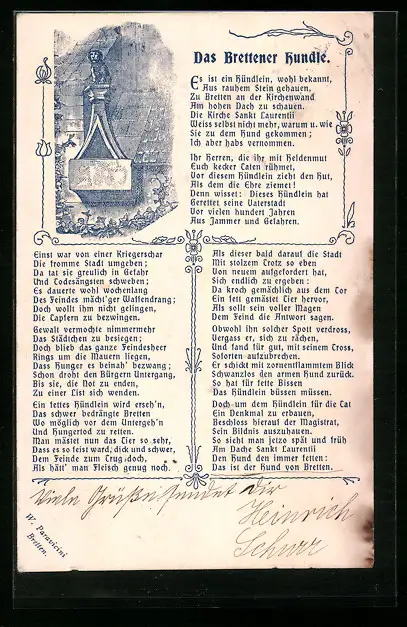 Das Brettener Hundle.
Es ist ein Hündlein, wohl bekannt,
Aus rauhem Stein gehauen,
Zu Bretten an der Kirchenwand
Am hohen Dach zu schauen.
Die Kirche Sankt Laurentii
Weiss selbst nicht mehr, warum u. wie
Sie zu dem Hund gekommen;
Ich aber habs vernommen.
Ihr Herren, die ihr mit Heldenmut
Euch kecker Taten rühmet,
Vor diesem Hündlein zieht den Hut,
Als dem die Ehre ziemet!
Denn wisset: Dieses Hündlein hat
Gerettet seine Vaterstadt
Vor vielen hundert Jahren
Aus Jammer und Gefahren.
Einst war von einer Kriegerschar
Die fromme Stadt umgeben;
Da tat sie greulich in Gefahr
Und Todesängsten schweben;
Es dauerte wohl wochenlang
Des Feindes mächt'ger Waffendrang;
Doch wollt ihm nicht gelingen,
Die Tapfern zu bezwingen.
Gewalt vermochte nimmermehr
Das Städtchen zu besiegen;
Doch blieb das ganze Feindesheer
Rings um die Mauern liegen,
Dass Hunger es beinah' bezwang;
Schon droht den Bürgern Untergang,
Bis sie, die Not zu enden,
Zu einer List sich wenden.
Ein fettes Hündlein wird erseh'n,
Das schwer bedrängte Bretten
Wo möglich vor dem Untergeh'n
Und Hungertod zu retten.
Man mästet nun das Tier so sehr,
Dass es so feist ward, dick und schwer,
Dem Feinde zum Trug doch,
Als hätt' man Fleisch genug noch.
Als dieser bald darauf die Stadt
Mit stolzem Trotz so eben
Von neuem aufgefordert hat,
Sich endlich zu ergeben:
Da kroch gemächlich aus dem Tor
Ein fett gemästet Tier hervor,
Als sollt sein voller Magen
Dem Feind die Antwort sagen.
Obwohl ihn solcher Spott verdross,
Vergass er, sich zu rächen,
Und fand für gut, mit seinem Tross,
Sofort aufzubrechen.
Er schickt mit zornentflammtem Blick
Schwanzlos den armen Hund zurück.
So hat für fette Bissen
Das Hündlein büssen müssen.
Doch um dem Hündlein für die Tat
Ein Denkmal zu erbauen,
Beschloss hierauf der Magistrat,
Sein Bildnis auszuhauen.
So sieht man jetzo spät und früh
Am Dache Sankt Laurentii
Den Hund den immer fetten:
Das ist der Hund von Bretten.
Viele Grüße sendet Dir
Heinrich
Schnurr
W. Paravicini
Bretten.